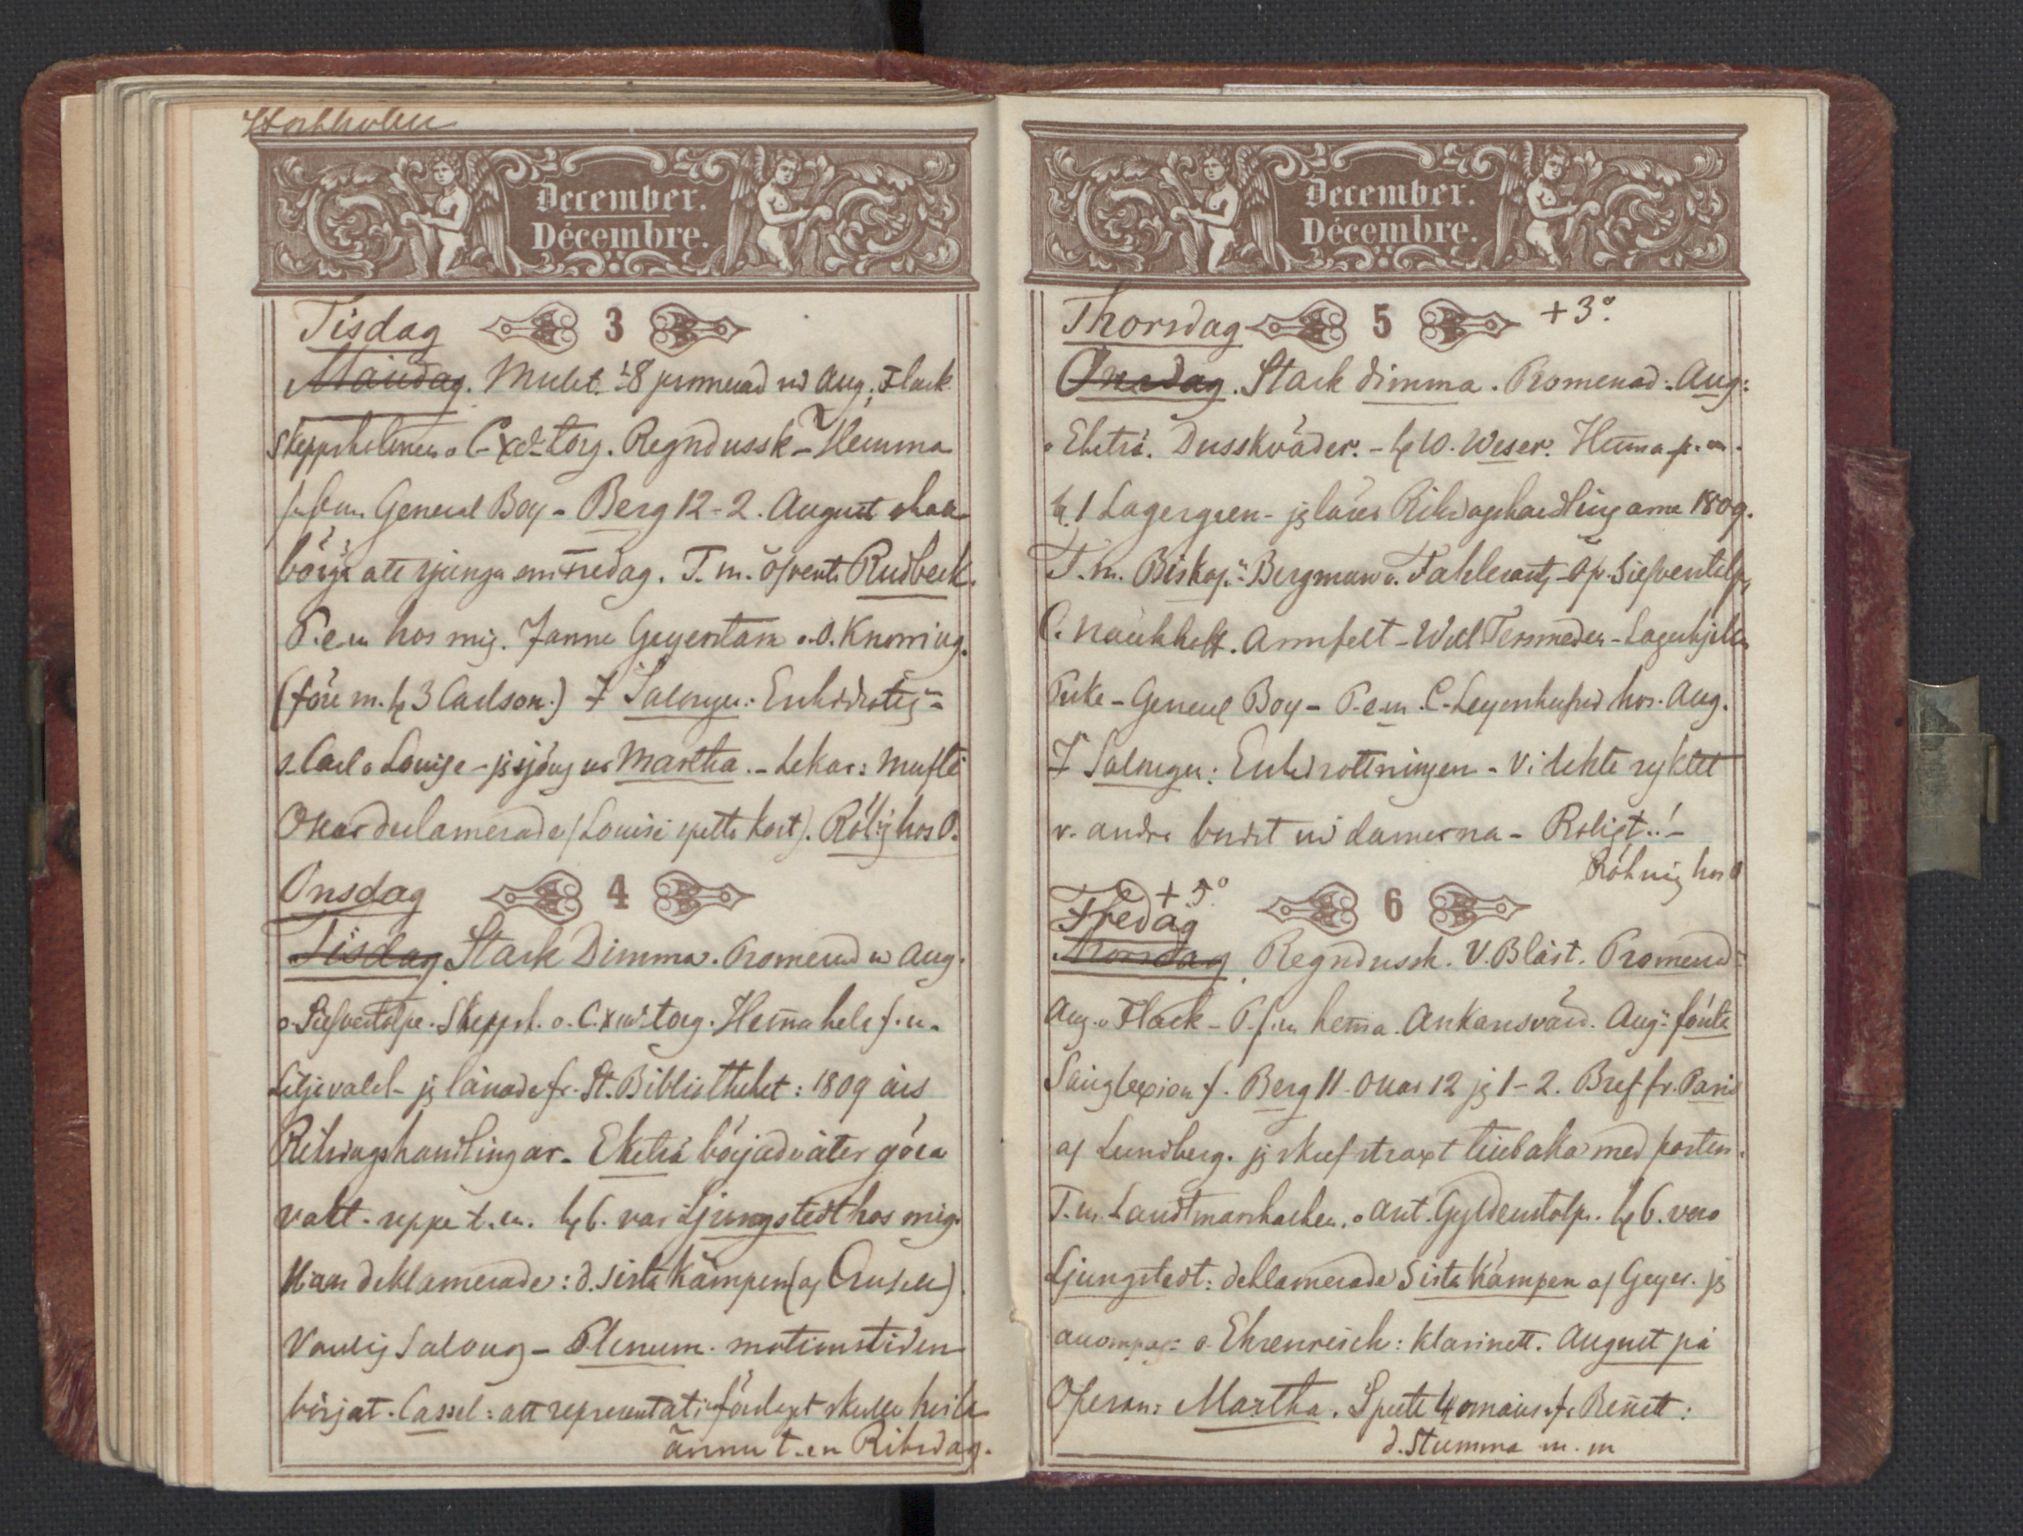 Stockholm
December.
Décembre.
Tisdag 3
Måndag. Mulet. -8 promenad vd Aug: Flack
Skeppsholmen o C-XIII torg. Regndussk - Hemma
f.m. General Boy - Berg 12-2. August skall
börja att sjunga om fredag. T. m. öfverste Rudbeck.
P. e m hos mig. Janne Geyerstam o. O. Knorring.
(före m. kl 3 Carlson.) I Salongen: Enkedrottn:
s. Carl o Louise - jg sjöng ur Martha. - Lekar: Mufti
Oscar deklamerade (Louise spelte kort). Röhrig hos O.
Onsdag 4
Tisdag Stark Dimma. Promenad vd Aug.
o Silfverstolpe. Skepssh. o. C. XIII torg. Hemma hela f. m.
Liljevalch - jg lånade fr. St. Bibliotheket: 1809 års
Riksdagshandlingar - Eketrä började åter göra
vakt. uppe t. m. kl 6. var Ljungstedt hos mig.
Han deklamerade: d. sista Kämpen (af
Vanlig Salong - Plenum. motionstiden
börjat. Cassel: att representat:förslaget skulle hvila
ännu t. en Riksdag.
December.
Décembre.
Thorsdag 5 +3°.
Onsdag. Stark dimma. Promenad. Aug:
o Eketrä. Dusskväder. - kl 10. Weser. Hemma f. m.
kl. 1 Lagergren - jg läser Riksdagshandlingarne 1809.
T. m. Biskop:r Bergman o. Fahlcrantz - Öf. Silfverstolpe,
C. Nauckhoff. Armfelt - Wilh Tersmeden - Lagerhjelm
Puke - General Boy - P. e m. C. Leyonhufvud hos. Aug.
I Salongen: Enkedrottningen - Vi lekte ryktet
v. andra bordet vd damerna - Roligt..! -
Röhrig hos O
Fredag +5°. 6
Thorsdag Regndussk. V. Blåst. Promenad:
Aug. o Flack - P. f. m hemma. Ankarsvärd. Aug:s första
Sånglexion f. Berg 11. Oscar 12 jg 1-2. Bref fr. Paris
af Lundberg. jg skref straxt tillbaka med posten.
T. m. Landtmarskalken. o Ant. Gyldenstolpe. kl 6. voro
Ljungstedt: deklamerade Sista Kämpen af Geyer. jg
accompag: o. Ehrenreich: Klarinett. August på
Operan: Martha. Spelte 4 fr. Bennett:
d. Stumma m. m